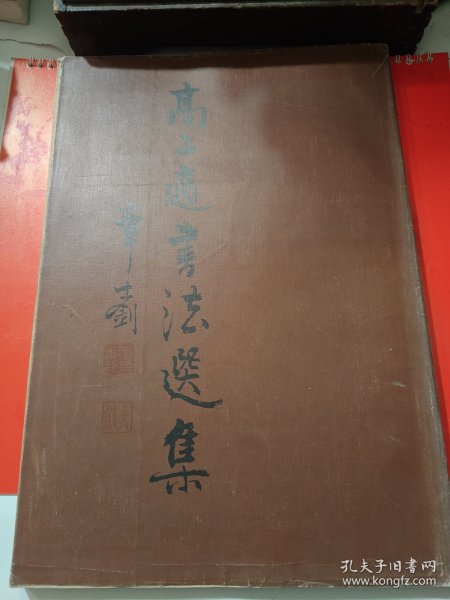 高二適書法選集
孔夫子旧书网
www.kongfz.com